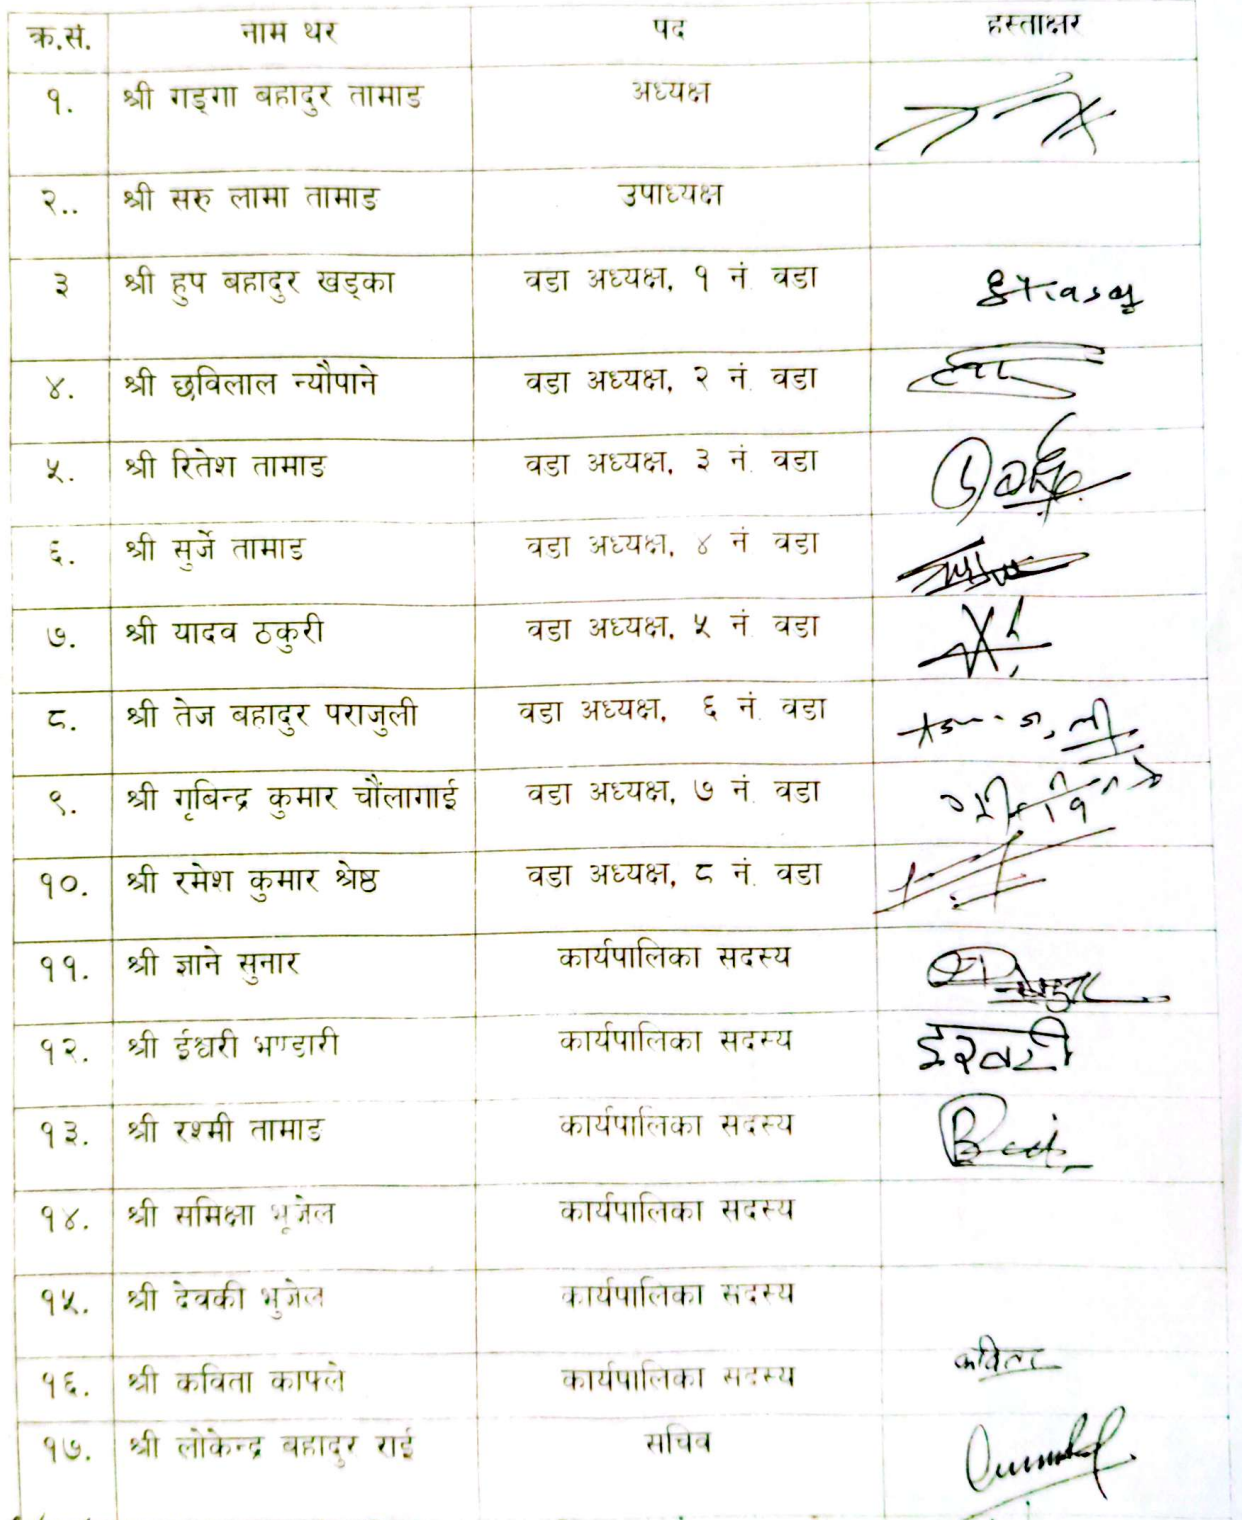 क्र.सं. नाम थर पद हस्ताक्षर
१. श्री गङ्गा बहादुर तामाङ अध्यक्ष
२.. श्री सरु लामा तामाङ उपाध्यक्ष
३ श्री हुप बहादुर खड्का वडा अध्यक्ष, १ नं. वडा
४. श्री छविलाल न्यौपाने वडा अध्यक्ष, २ नं. वडा
५. श्री रितेश तामाङ वडा अध्यक्ष, ३ नं. वडा
६. श्री सुर्जे तामाङ वडा अध्यक्ष, ४ नं. वडा
७. श्री यादव ठकुरी वडा अध्यक्ष, ५ नं. वडा
८. श्री तेज बहादुर पराजुली वडा अध्यक्ष, ६ नं. वडा
९. श्री गृबिन्द्र कुमार चौंलागाई वडा अध्यक्ष, ७ नं. वडा
१०. श्री रमेश कुमार श्रेष्ठ वडा अध्यक्ष, ८ नं. वडा
११. श्री ज्ञाने सुनार कार्यपालिका सदस्य
१२. श्री ईश्वरी भण्डारी कार्यपालिका सदस्य इश्वरी
१३. श्री रश्मी तामाङ कार्यपालिका सदस्य
१४. श्री समिक्षा भूजेल कार्यपालिका सदस्य
१५. श्री देवकी भुजेल कार्यपालिका सदस्य
१६. श्री कविता काफ्ले कार्यपालिका सदस्य कविता
१७. श्री लोकेन्द्र बहादुर राई सचिव